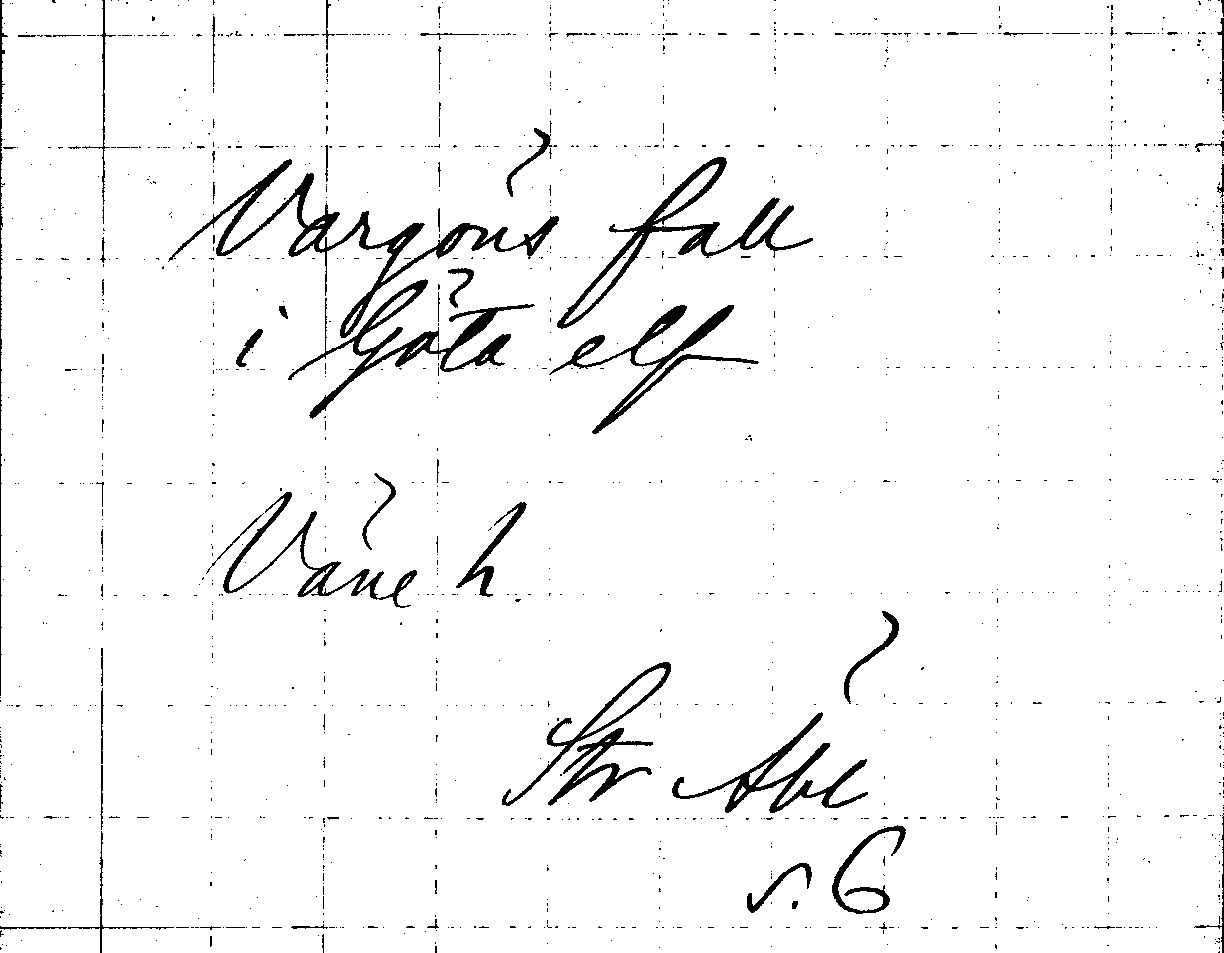 Vargöns fall
i Göta elf
Väne h.
Str Äbl
s. 6